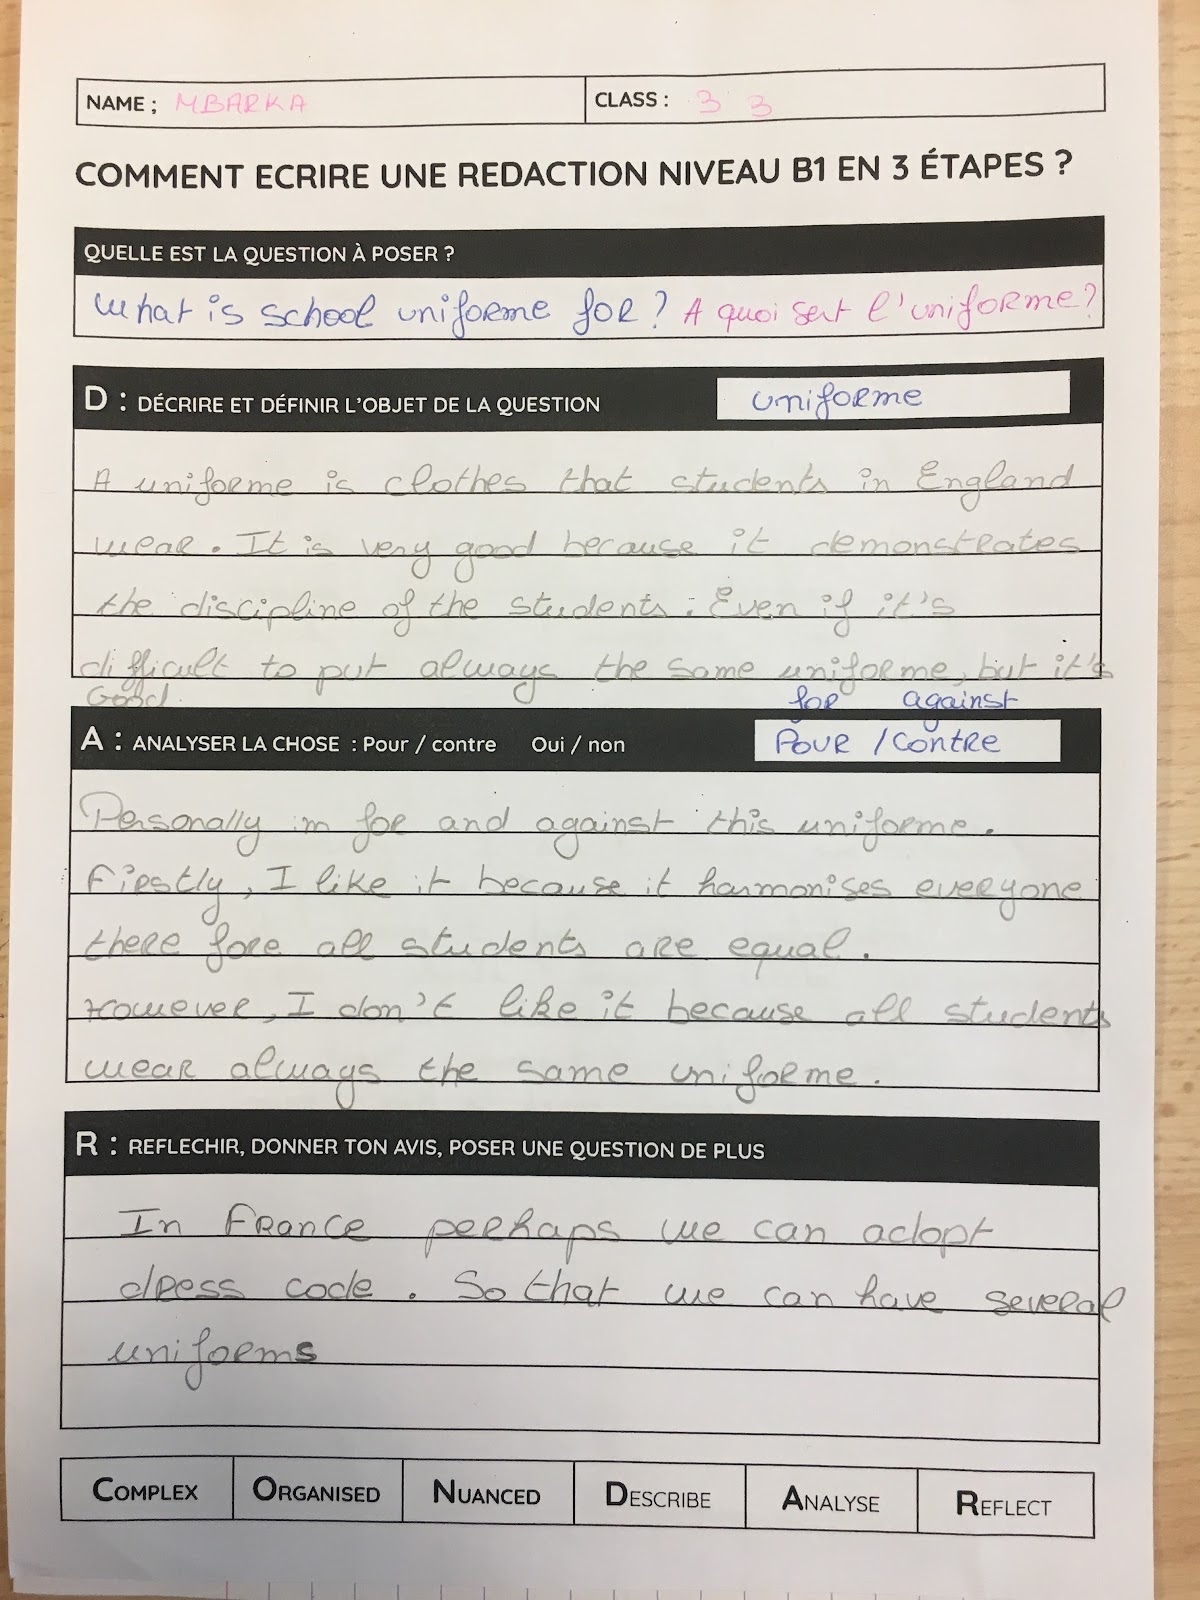 NAME ; MBARKA CLASS : 3 3
COMMENT ECRIRE UNE REDACTION NIVEAU B1 EN 3 ÉTAPES ?
QUELLE EST LA QUESTION À POSER ?
What is school uniforme for? A quoi sert l'uniforme?
D : DÉCRIRE ET DÉFINIR L'OBJET DE LA QUESTION uniforme
A uniforme is clothes that students in England
wear. It is very good because it demonstrates
the discipline of the students. Even if it's
difficult to put always the same uniforme, but it's
Good.
for against
A : ANALYSER LA CHOSE : Pour / contre Oui / non POUR / CONTRE
Personally im for and against this uniforme.
Firstly, I like it because it harmonises everyone
there fore all students are equal.
However, I don't like it because all students
wear always the same uniforme.
R : REFLECHIR, DONNER TON AVIS, POSER UNE QUESTION DE PLUS
In France perhaps we can adopt
dress code. So that we can have several
uniforms
COMPLEX ORGANISED NUANCED DESCRIBE ANALYSE REFLECT